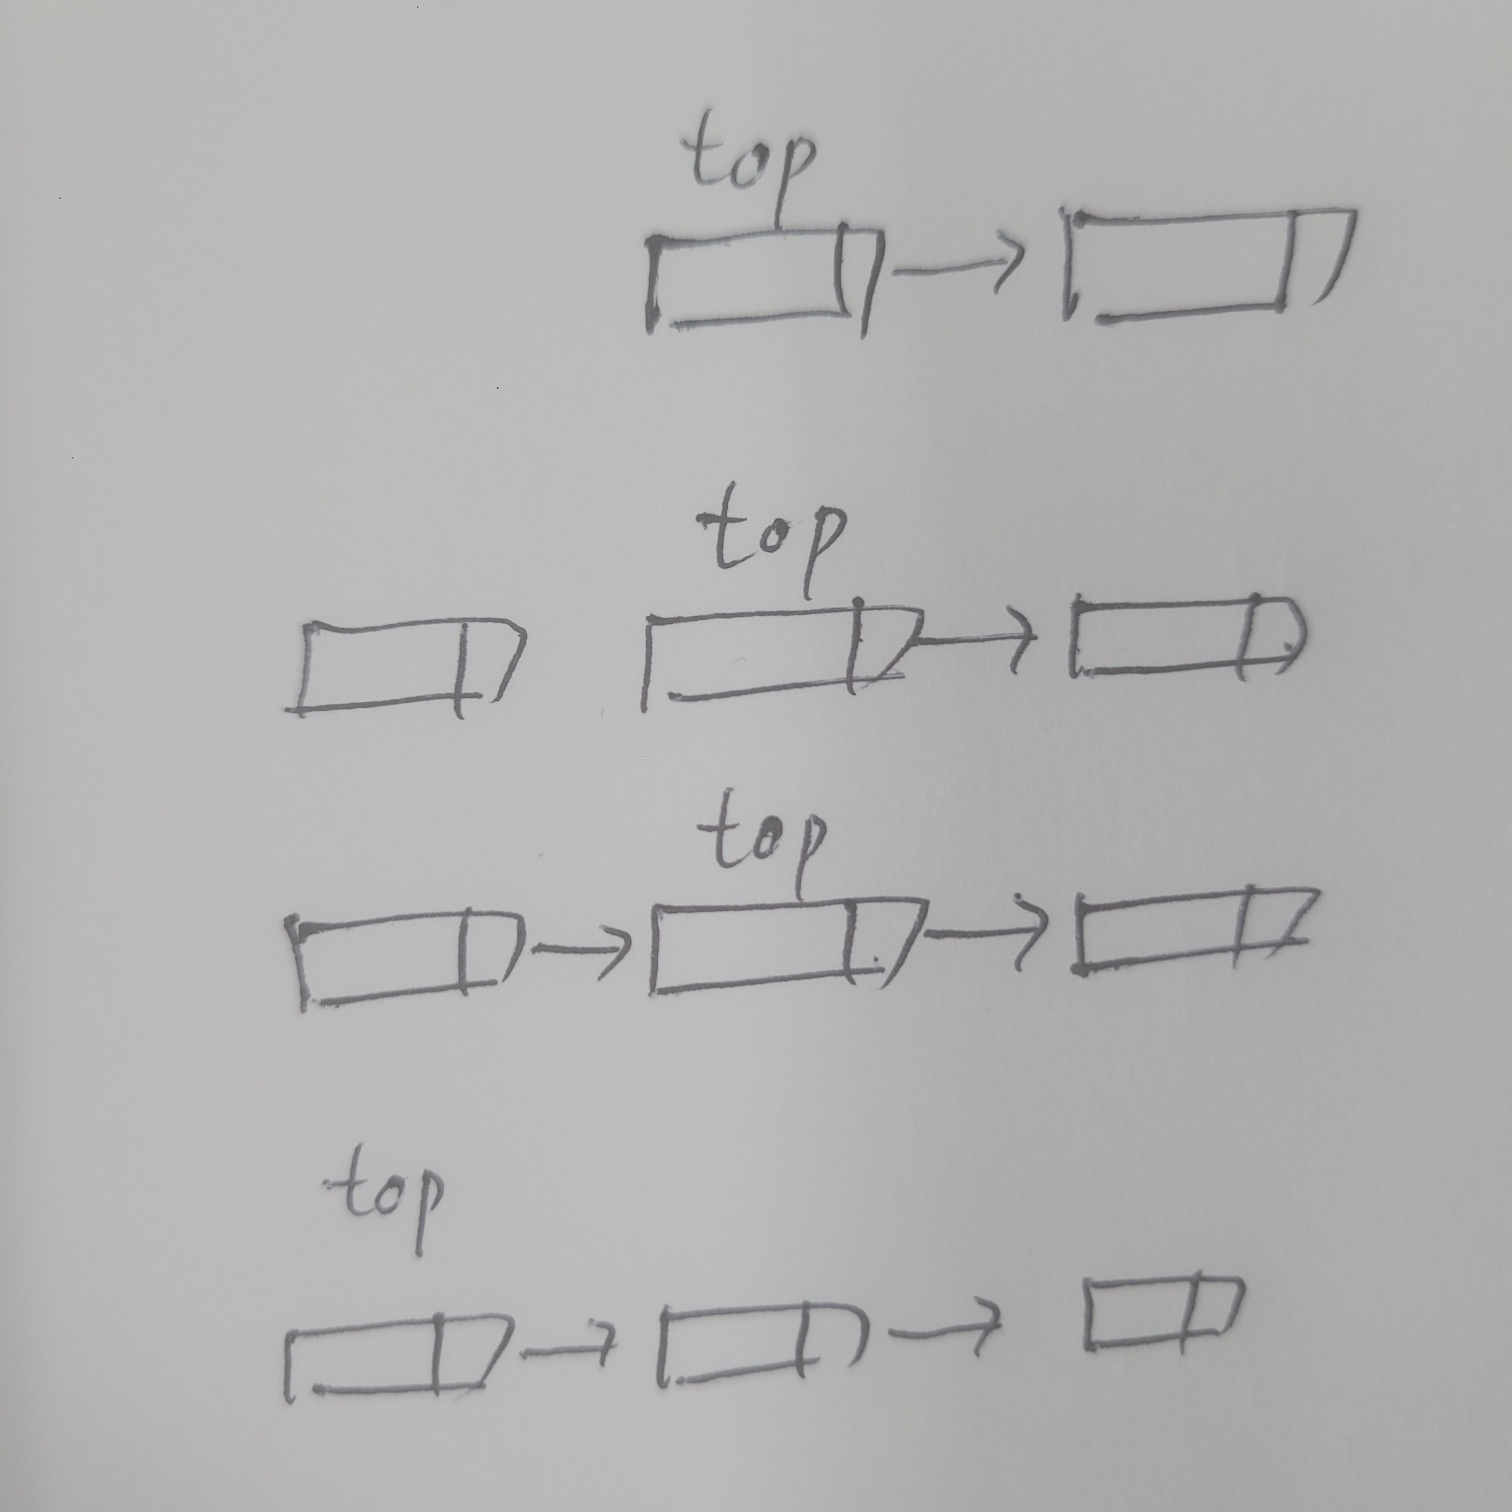 top
top
top
top